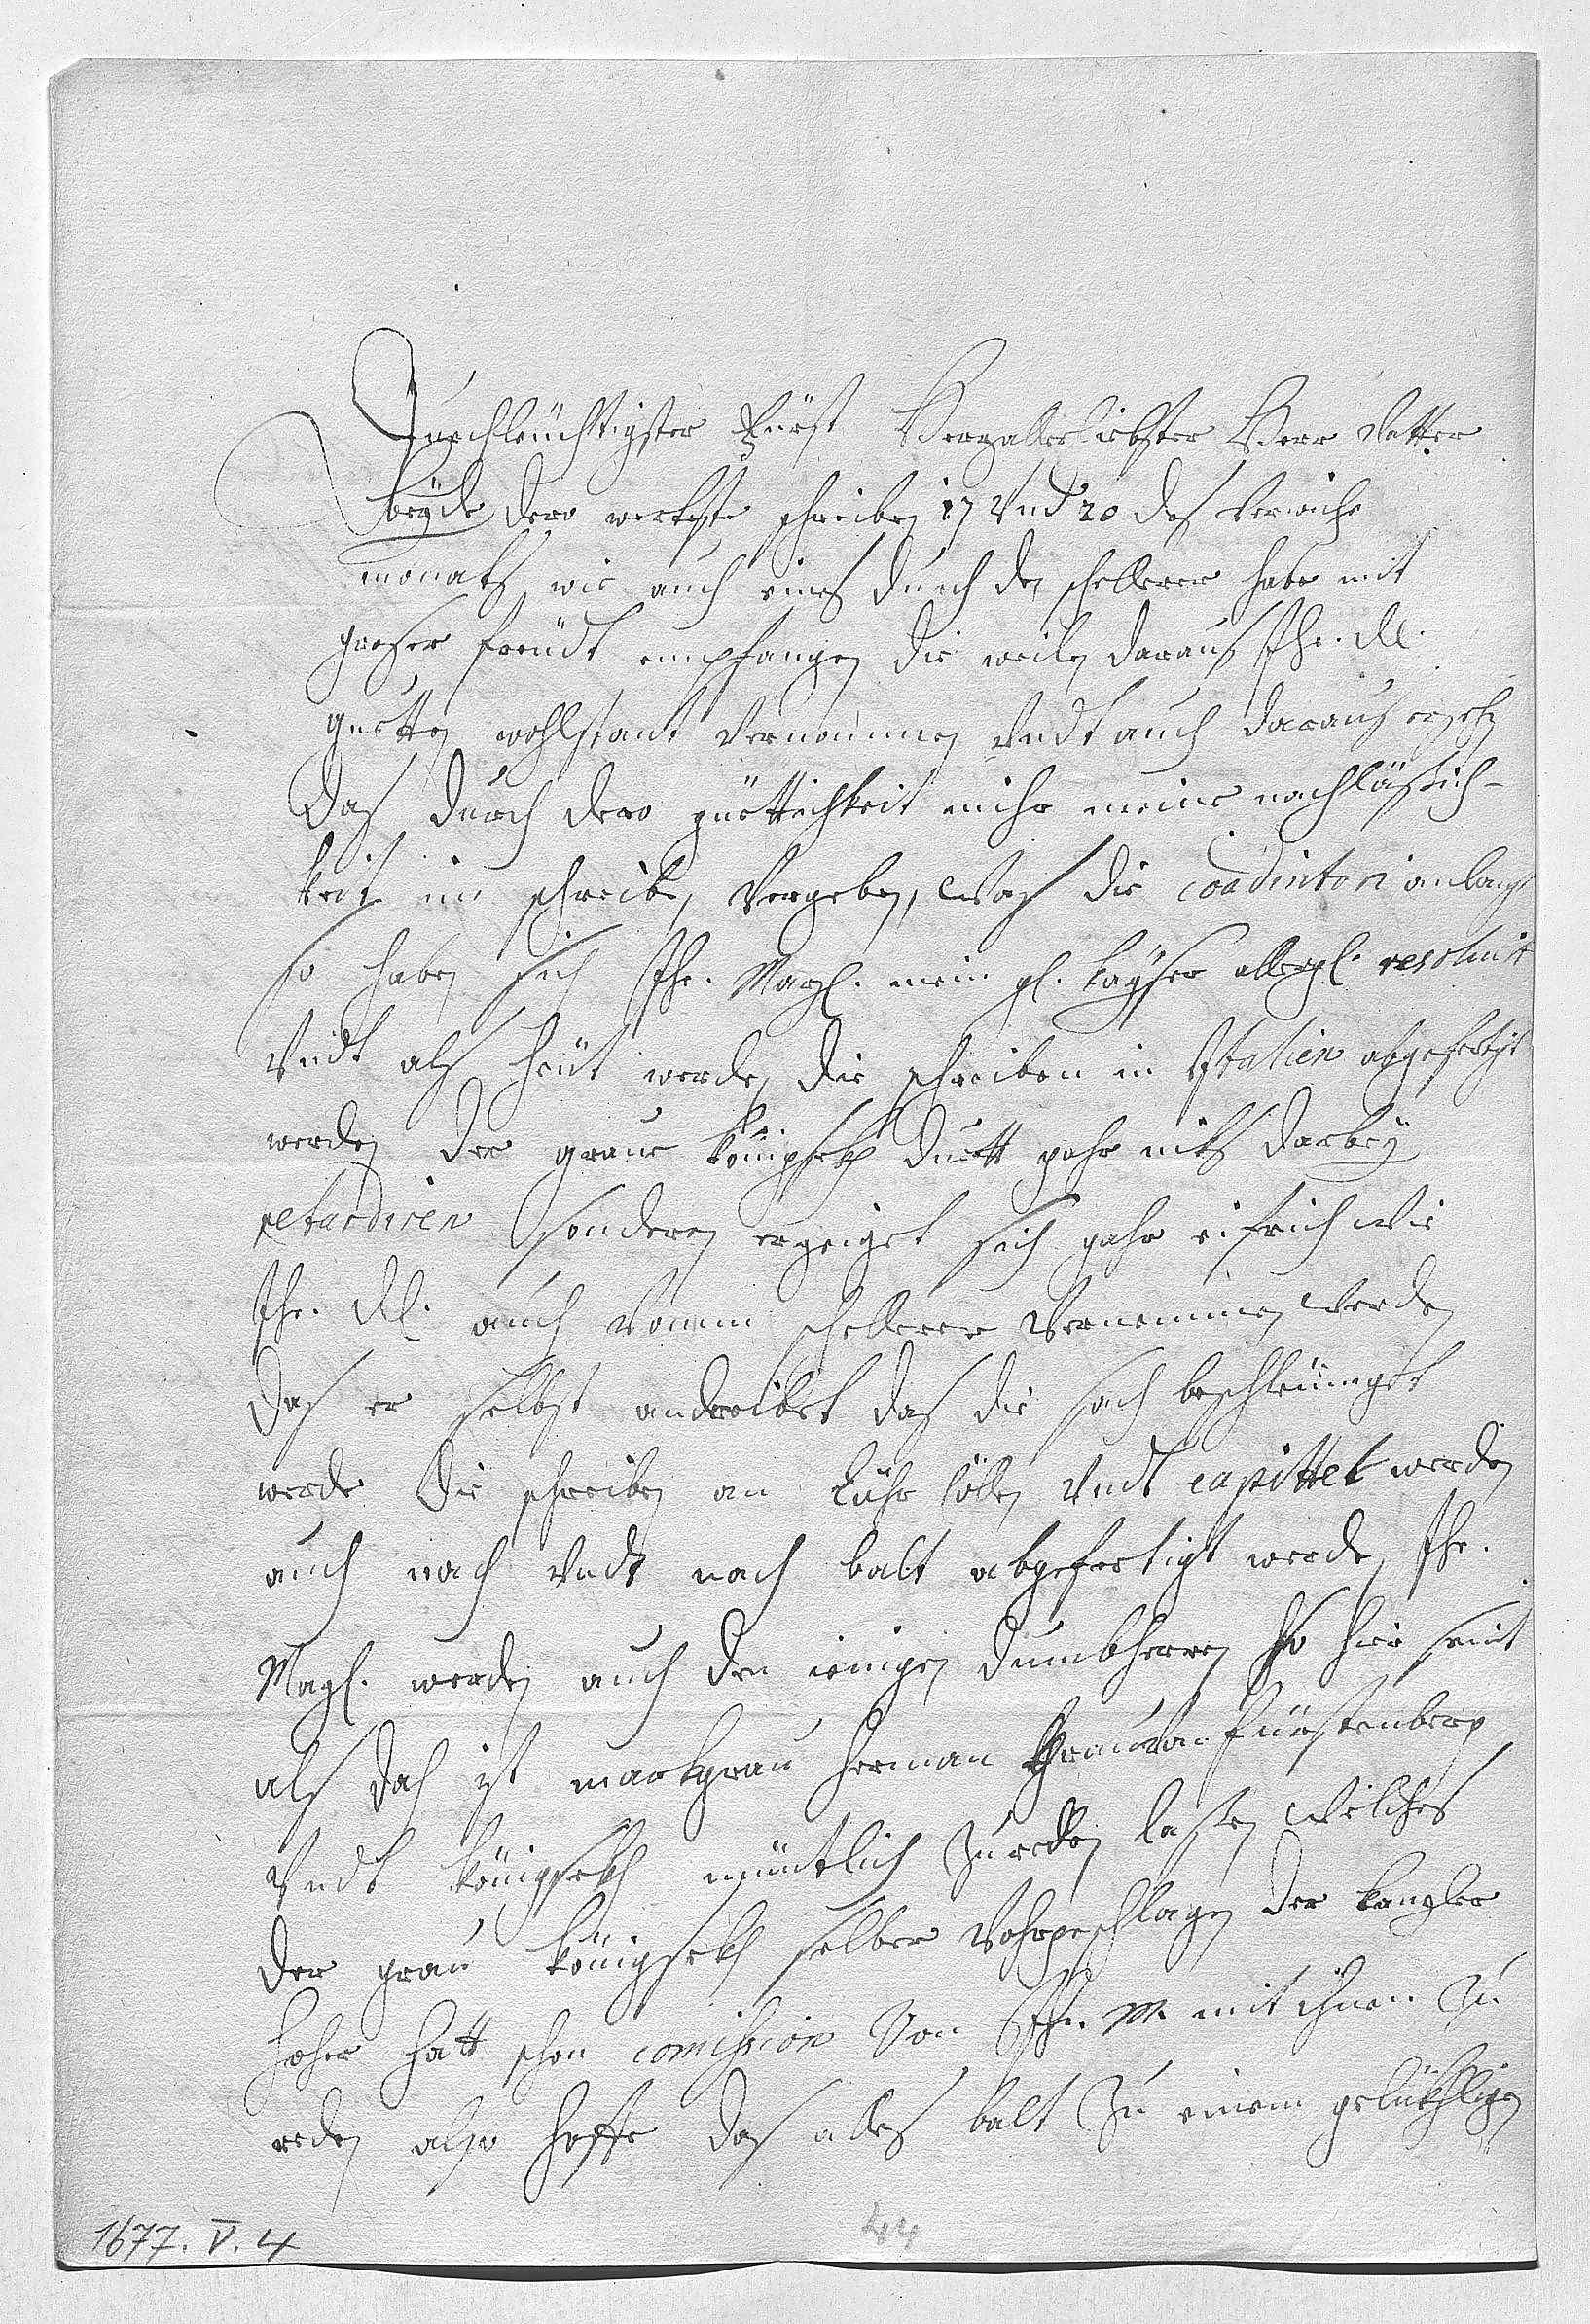 Durchleüchtigster Fürst Herzallerliebster Herr Vatter
beyde dero werthste schreiben 17 vnd 20 des verwiche
monats wie auch eines durch den schellerer habe mit
groser freüdt empfangen die weilen daraus Ihr. Dl.
guetten wohlstant vernommen vndt auch daraus ersehen
das durch dero güettichkeit mihr meine nachläsich-
keit im schreiben vergeben, was die coadiutori anlangt
so haben sich Ihr. Mayl. mein gl. kayser allergl. resoluirt
vndt als heüt werden die schreiben in Italien abgefertigt
werden der graue königsekh duett gahr nits darbey
retardiren sonderen erzeiget sich gahr eifrich wie
Ihr. Dl. auch vonn schellerer vernemmen werden
das er selbst andreibet das die sach beschleüniget
werde die schreiben an Cuhr Cöllen vndt capittel werden
auch nach vndt nach balt abgefertigt werden Ihr.
Mayl. werden auch den ienigen dumbherren so hier seint
als das ist markgrau Herman Grau von fürstenberg
vndt königsekh müntlich zu reden lasen welches
der grau königsekh selber vohrgeschlagen der kanzler
Hoher hatt schon comission von Ihr. M. mit ihnen zu
reden also hoffe das alles balt zu einem glückhligen
44
1677. V. 4